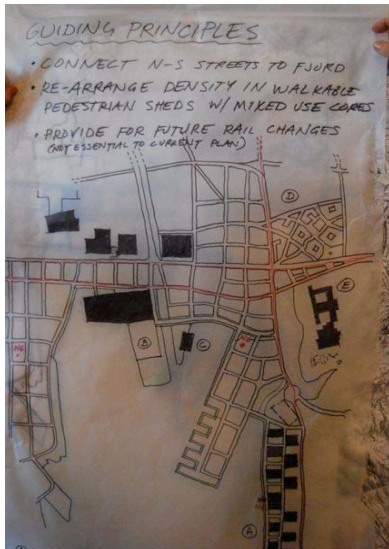 GUIDING PRINCIPLES
• CONNECT N-S STREETS TO FJORD
• RE-ARRANGE DENSITY IN WALKABLE
PEDESTRIAN SHEDS W/ MIXED USE CORES
• PROVIDE FOR FUTURE RAIL CHANGES
(NOT ESSENTIAL TO CURRENT PLAN)
D
E
B
C
A